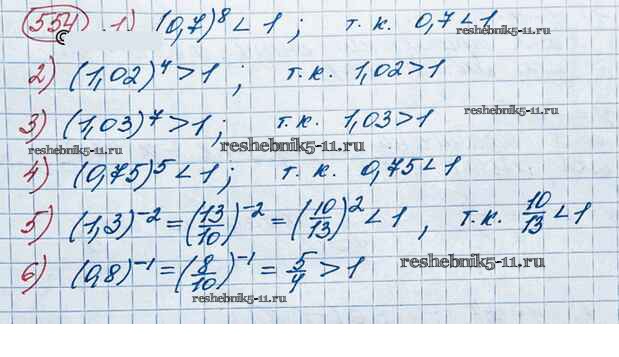 554. 1) (0,7)^8 < 1; т.к. 0,7 < 1
reshebnik5-11.ru
2) (1,02)^4 > 1; т.к. 1,02 > 1
3) (1,03)^7 > 1; т.к. 1,03 > 1
reshebnik5-11.ru
reshebnik5-11.ru
reshebnik5-11.ru
4) (0,75)^5 < 1; т.к. 0,75 < 1
5) (1,3)^-2 = (13/10)^-2 = (10/13)^2 < 1, т.к. 10/13 < 1
6) (0,8)^-1 = (8/10)^-1 = 5/4 > 1
reshebnik5-11.ru
reshebnik5-11.ru